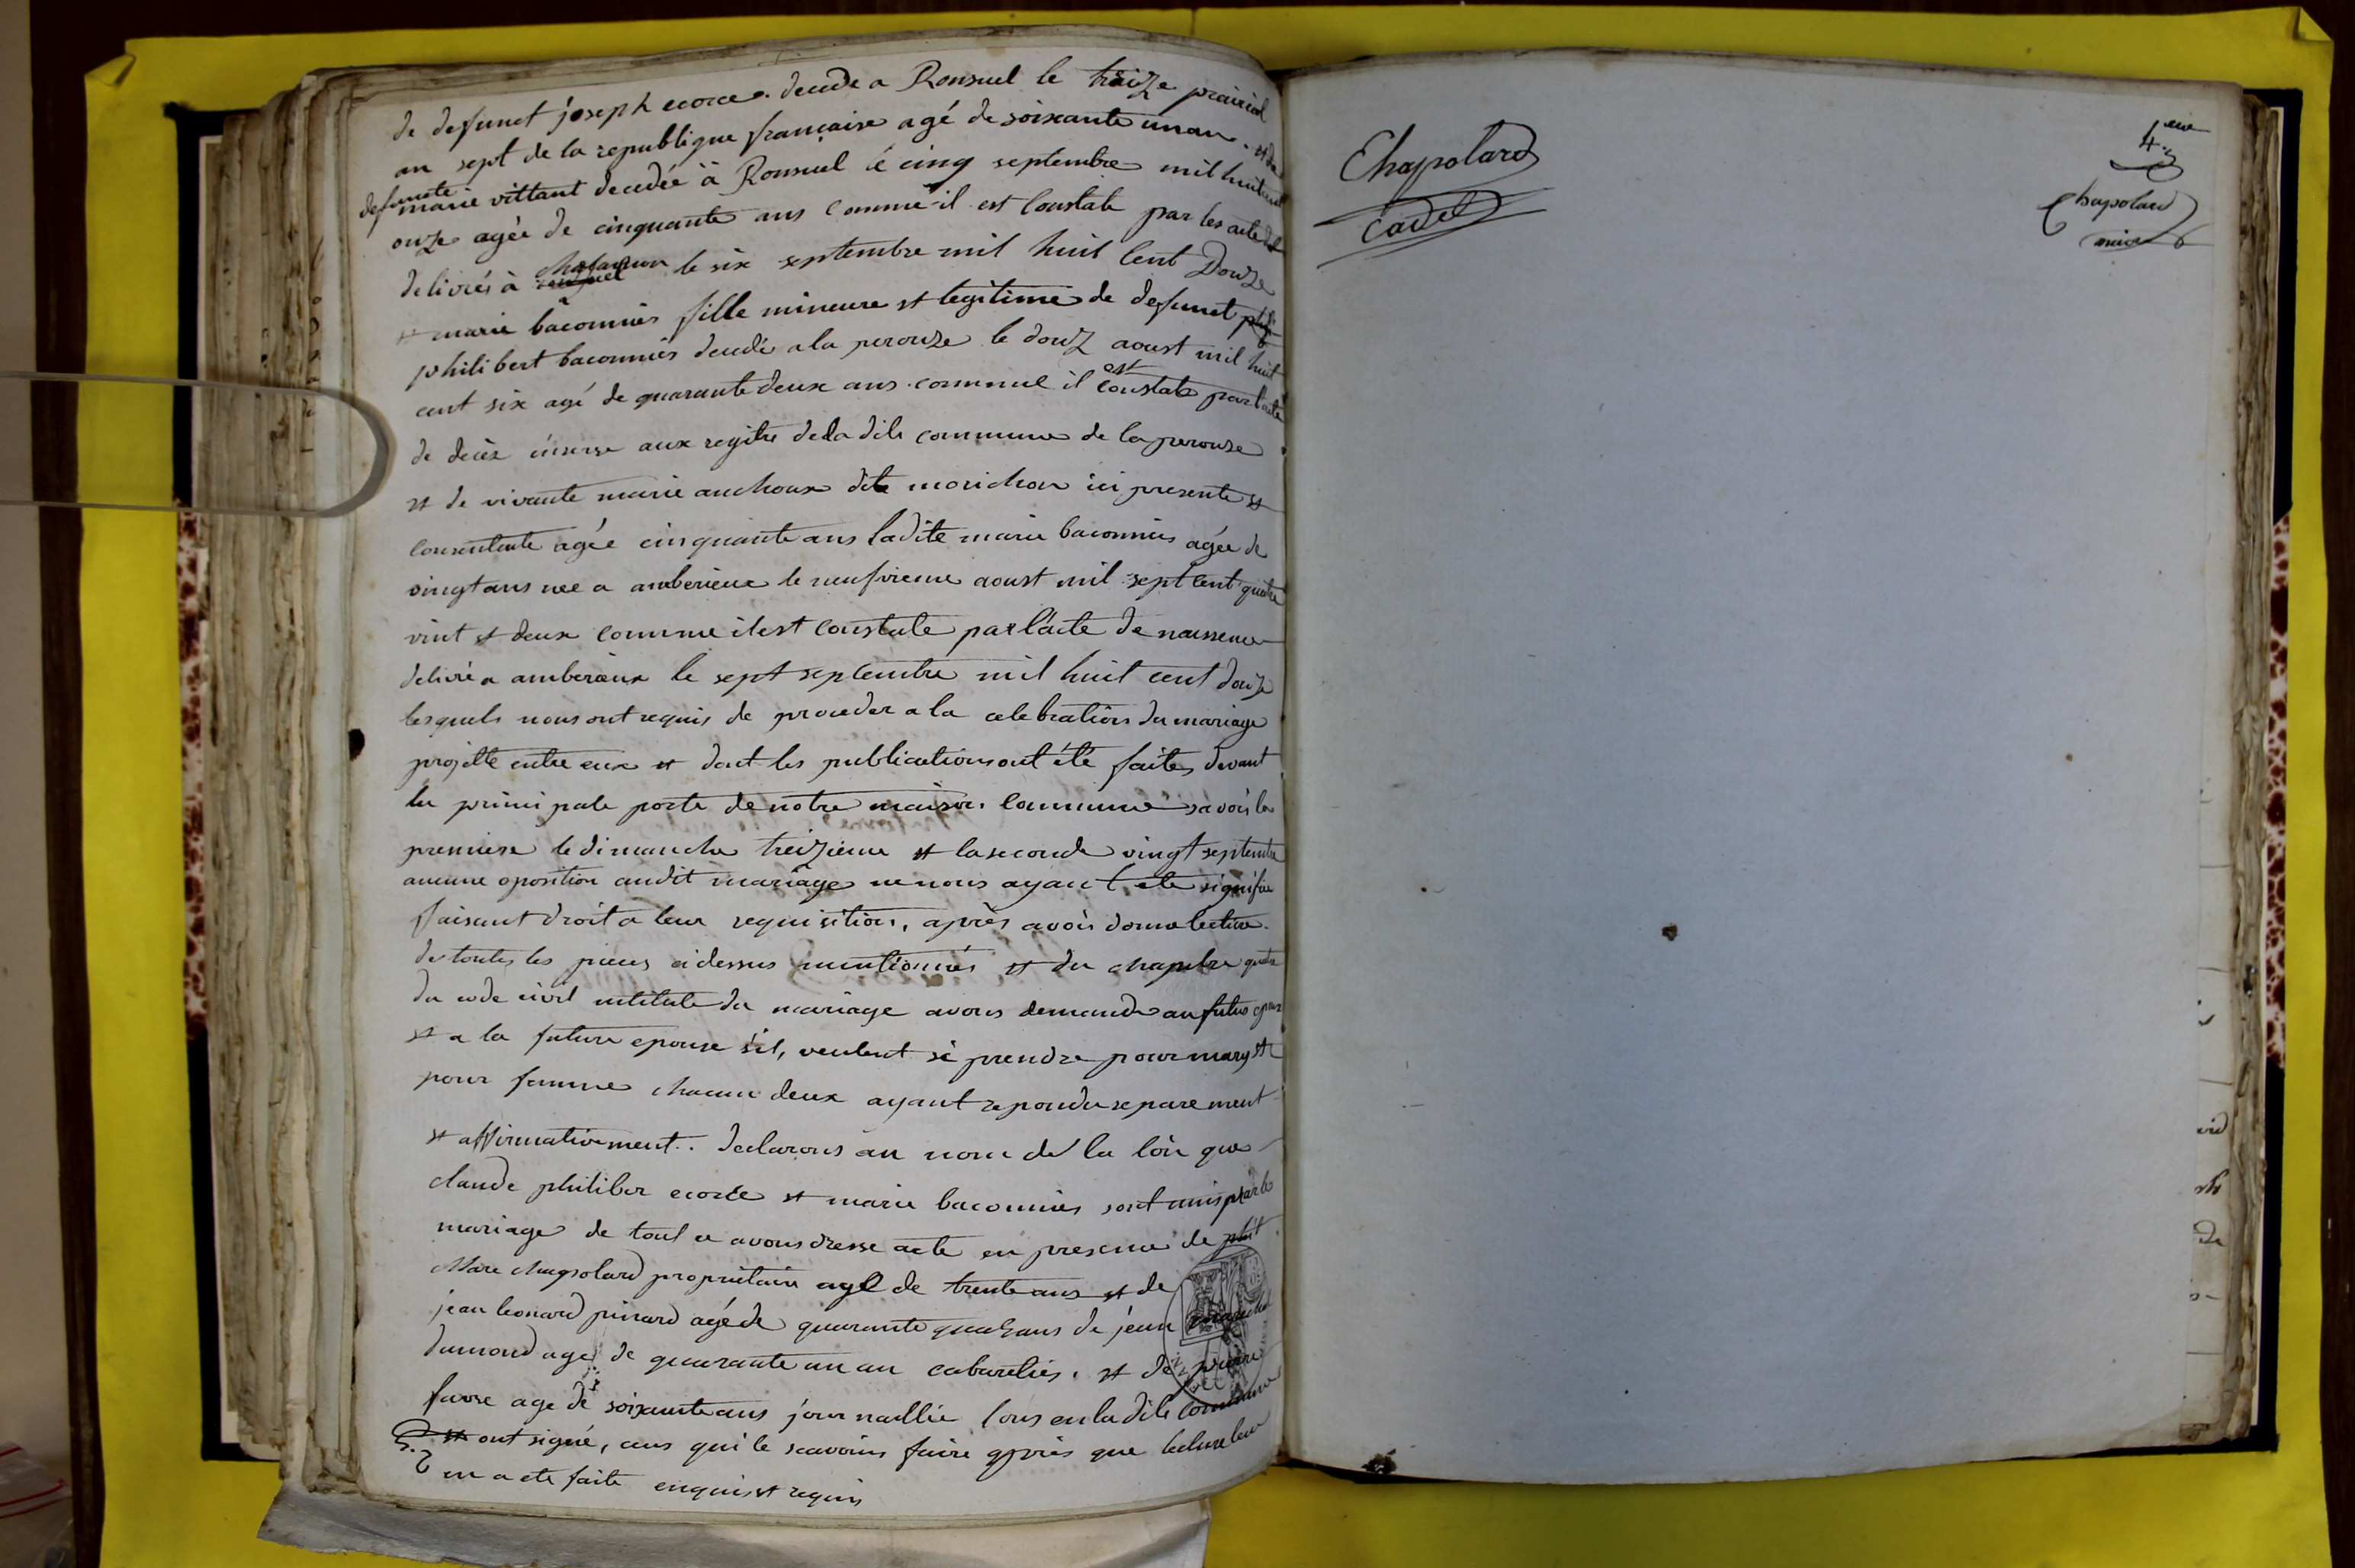 de defunct joseph ecorce. decede a Ronsuel le traize prairial
an sept de la republique francaise agé de soixante un an. et de
defuncte marie vittant decedée à Ronsuel le cinq septembre mil huit cent
onze agée de cinquante ans comme il est constate par les acte de
delivrés à chalamon le six septembre mil huit cent Douze
et marie baconnier fille mineure et legitime de defunct
philibert baconnier decedé a la perouze le douz aoust mil huit
cent six agé de quarante deux ans comme il est constate par l'acte
de decès inserse aux regitre de la dite commune de la perouze
et de vivante marie anchoux dite morichon ici presente et
consentente agée cinquante ans ladite marie baconnier agée de
vingt ans nee a amberieux le neufvieme aoust mil sept cent quatre
vint et deux comme il est constate par l'acte de naissence
delivré a amberieux le sept septembre mil huit cent douze
lesquels nous ont requis de proceder a la celebration du mariage
projetté entre eux et dont les publications ont été faites devant
la principale porte de notre maison commune savoir la
premiere le dimanche treizieme et la seconde vingt septembre
aucune oposition audit mariage ne nous ayant ete signifié
faisant droit a leur requisition, après avoir donne lecture
de toutes les pieces ci dessus mentionnés et du chapitre
du code civil intitule du mariage avons demande au futur epoux
et a la future epouse s'il, veulent se prendre pour mary et
pour femme chacun deux ayant repondu separement
et affirmativement. declarons au nom de la loi que
claude philiber ecorce et marie baconnier sont unis par le
mariage de tout ce avons dresse acte en presence de
Marc chapolard proprietaire agé de trente ans et de
jean leonard pinard agé de quarante quatre ans de jean
dumond age de quarante un an cabaretier. et de pierre
favre age de soixante ans journallier tous en la dite commune
et ont signé, ceux qui le scavoins faire apprès que lecture leur
en a ete faite enquis et requis
Chapolard
Cadet
4.eme
Chapolard